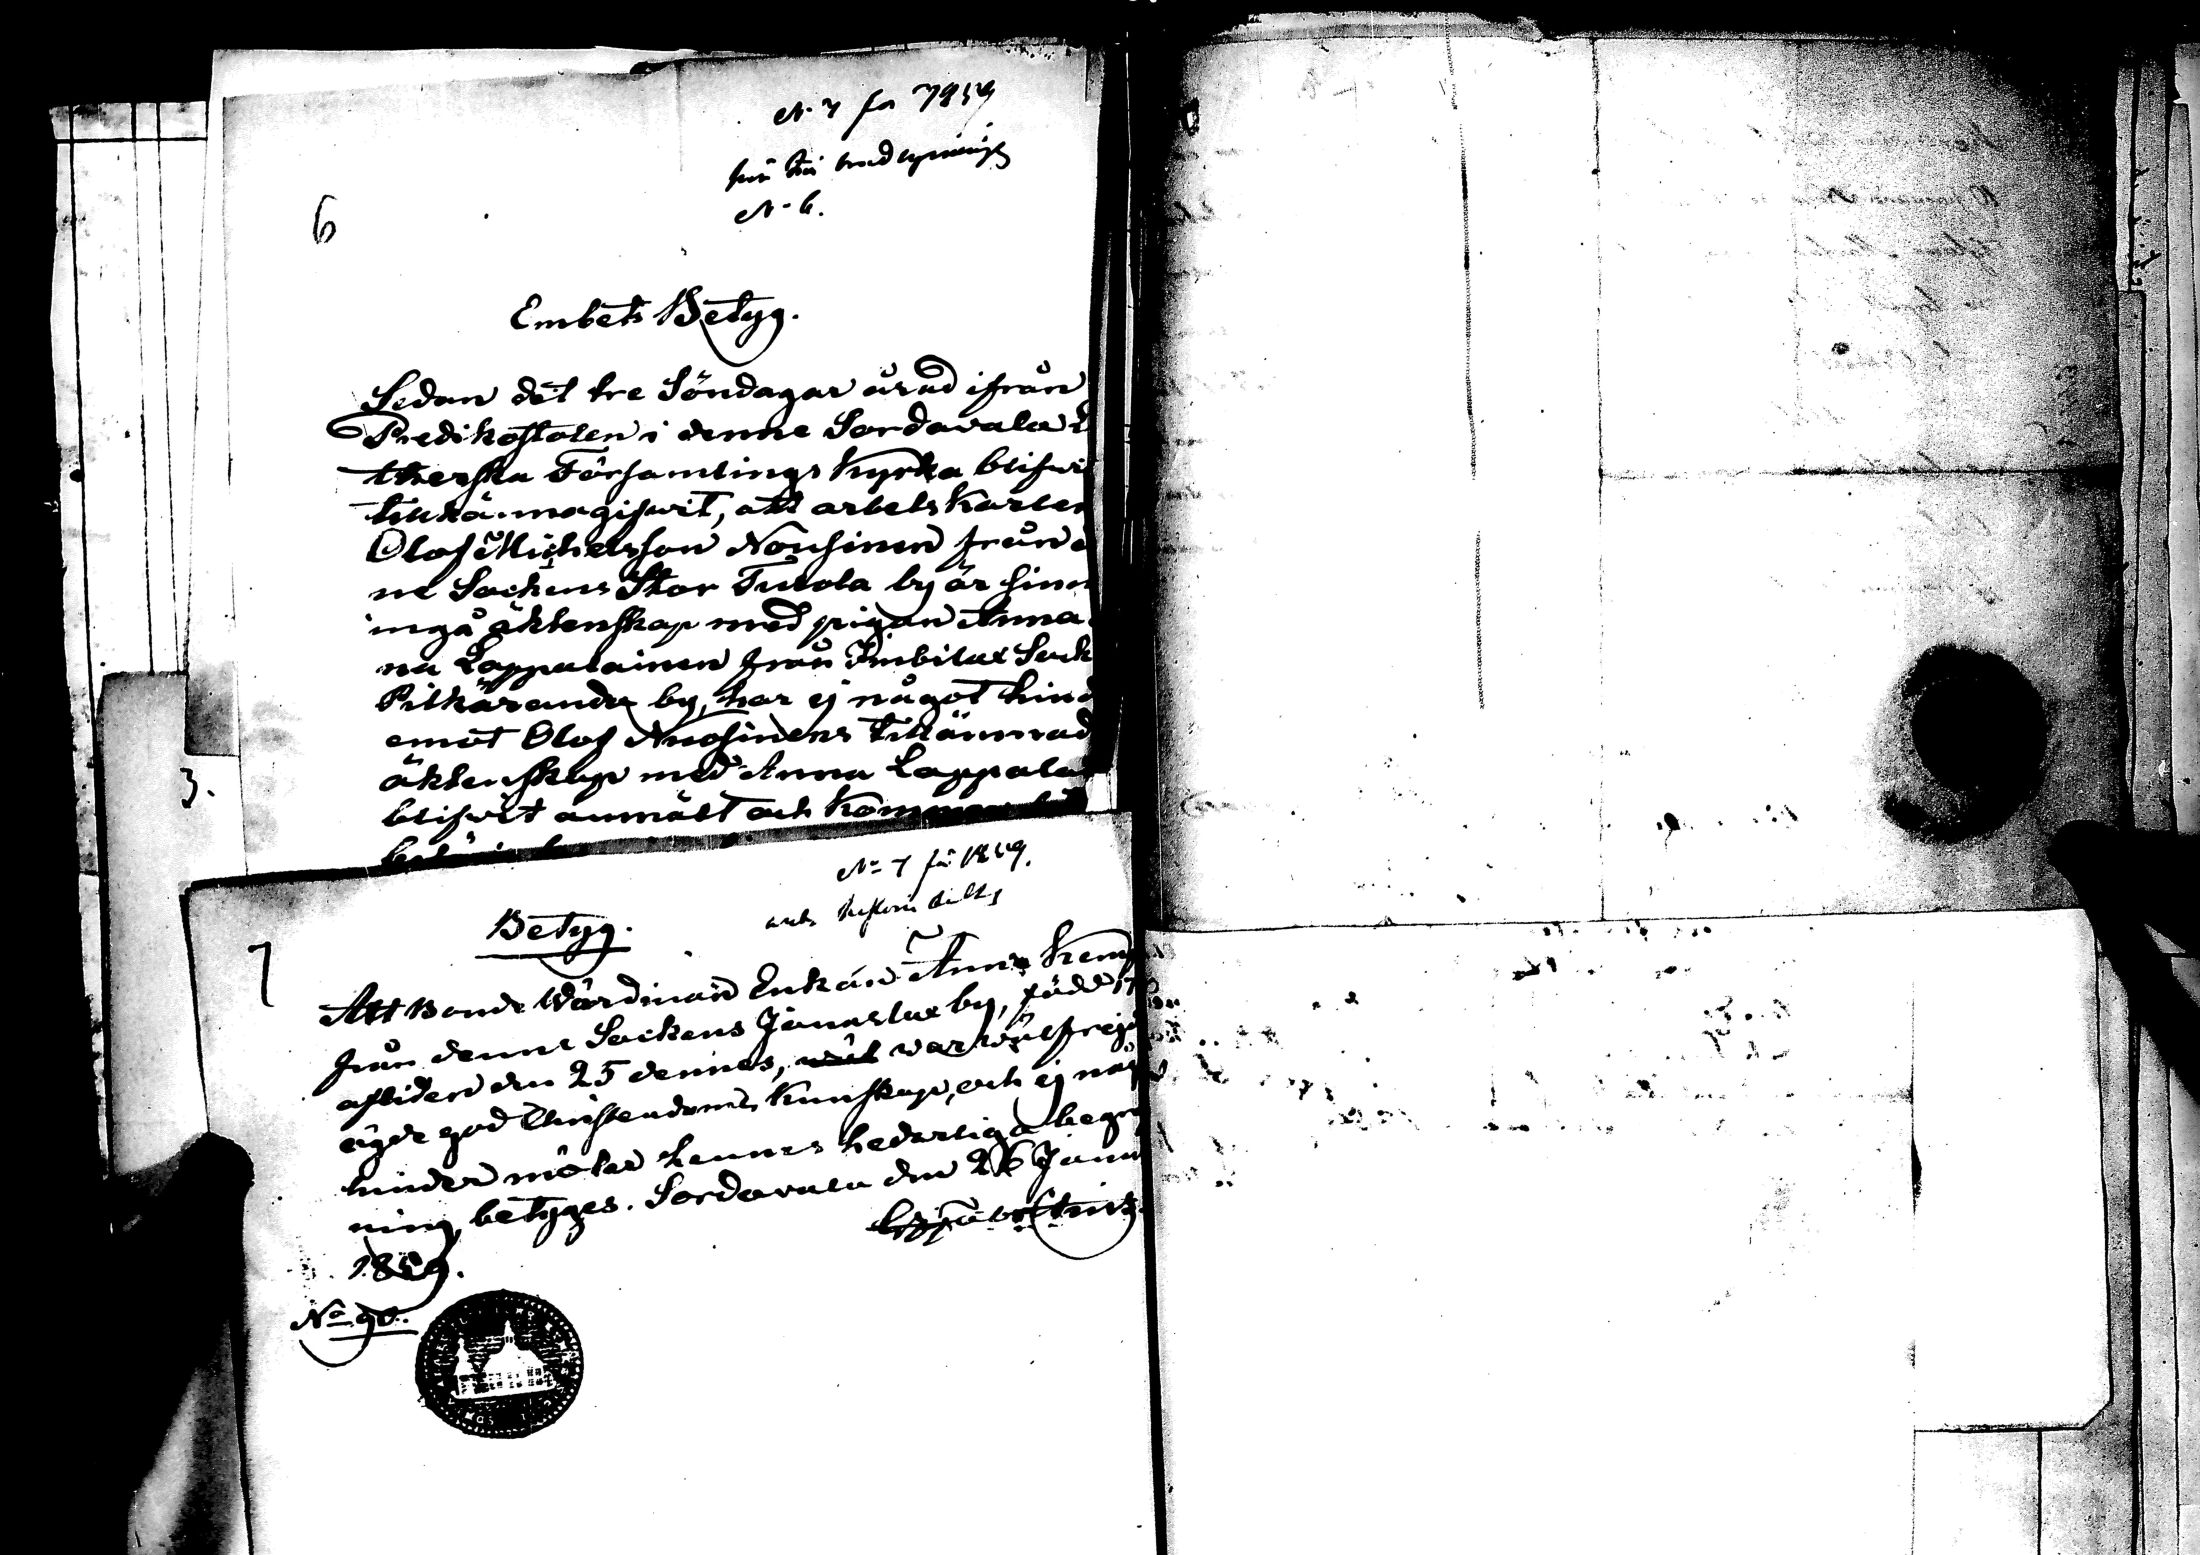 N. 7 for 1859
N. 6.
6
Embets Betyg.
Sedan det tre Söndagar å rad ifrån
Predikostolen i denne Sordavala
therska Församlings Kyrka blifvit
tillkännagifvit, att arbetskarlen
Olof Michelsson Nousinen från
ne Sockens Stor Tulola by är sinn
ingå äktenskap med pigan Anna
na Lappalainen från Imbilax Sock
Pitkäranda by, har ej något hind
emot Olof Nuosinens tillämnad
äktenskap med Anna Lappalai
blifvit anmält och kommer
3.
No 7 för 1859.
7
Betyg.
Att Bonde Wärdinan Enkan Anna Kemp
från denne Sockens Janaslax by, född 17
afliden den 25 dennes, wäl war wälfrejd
ägde god Christendoms kunskap, och ej någ
hinder möter hennes hederliga begr
ning, betyges. Sordavala den 26 Janu
1859.
No 90.